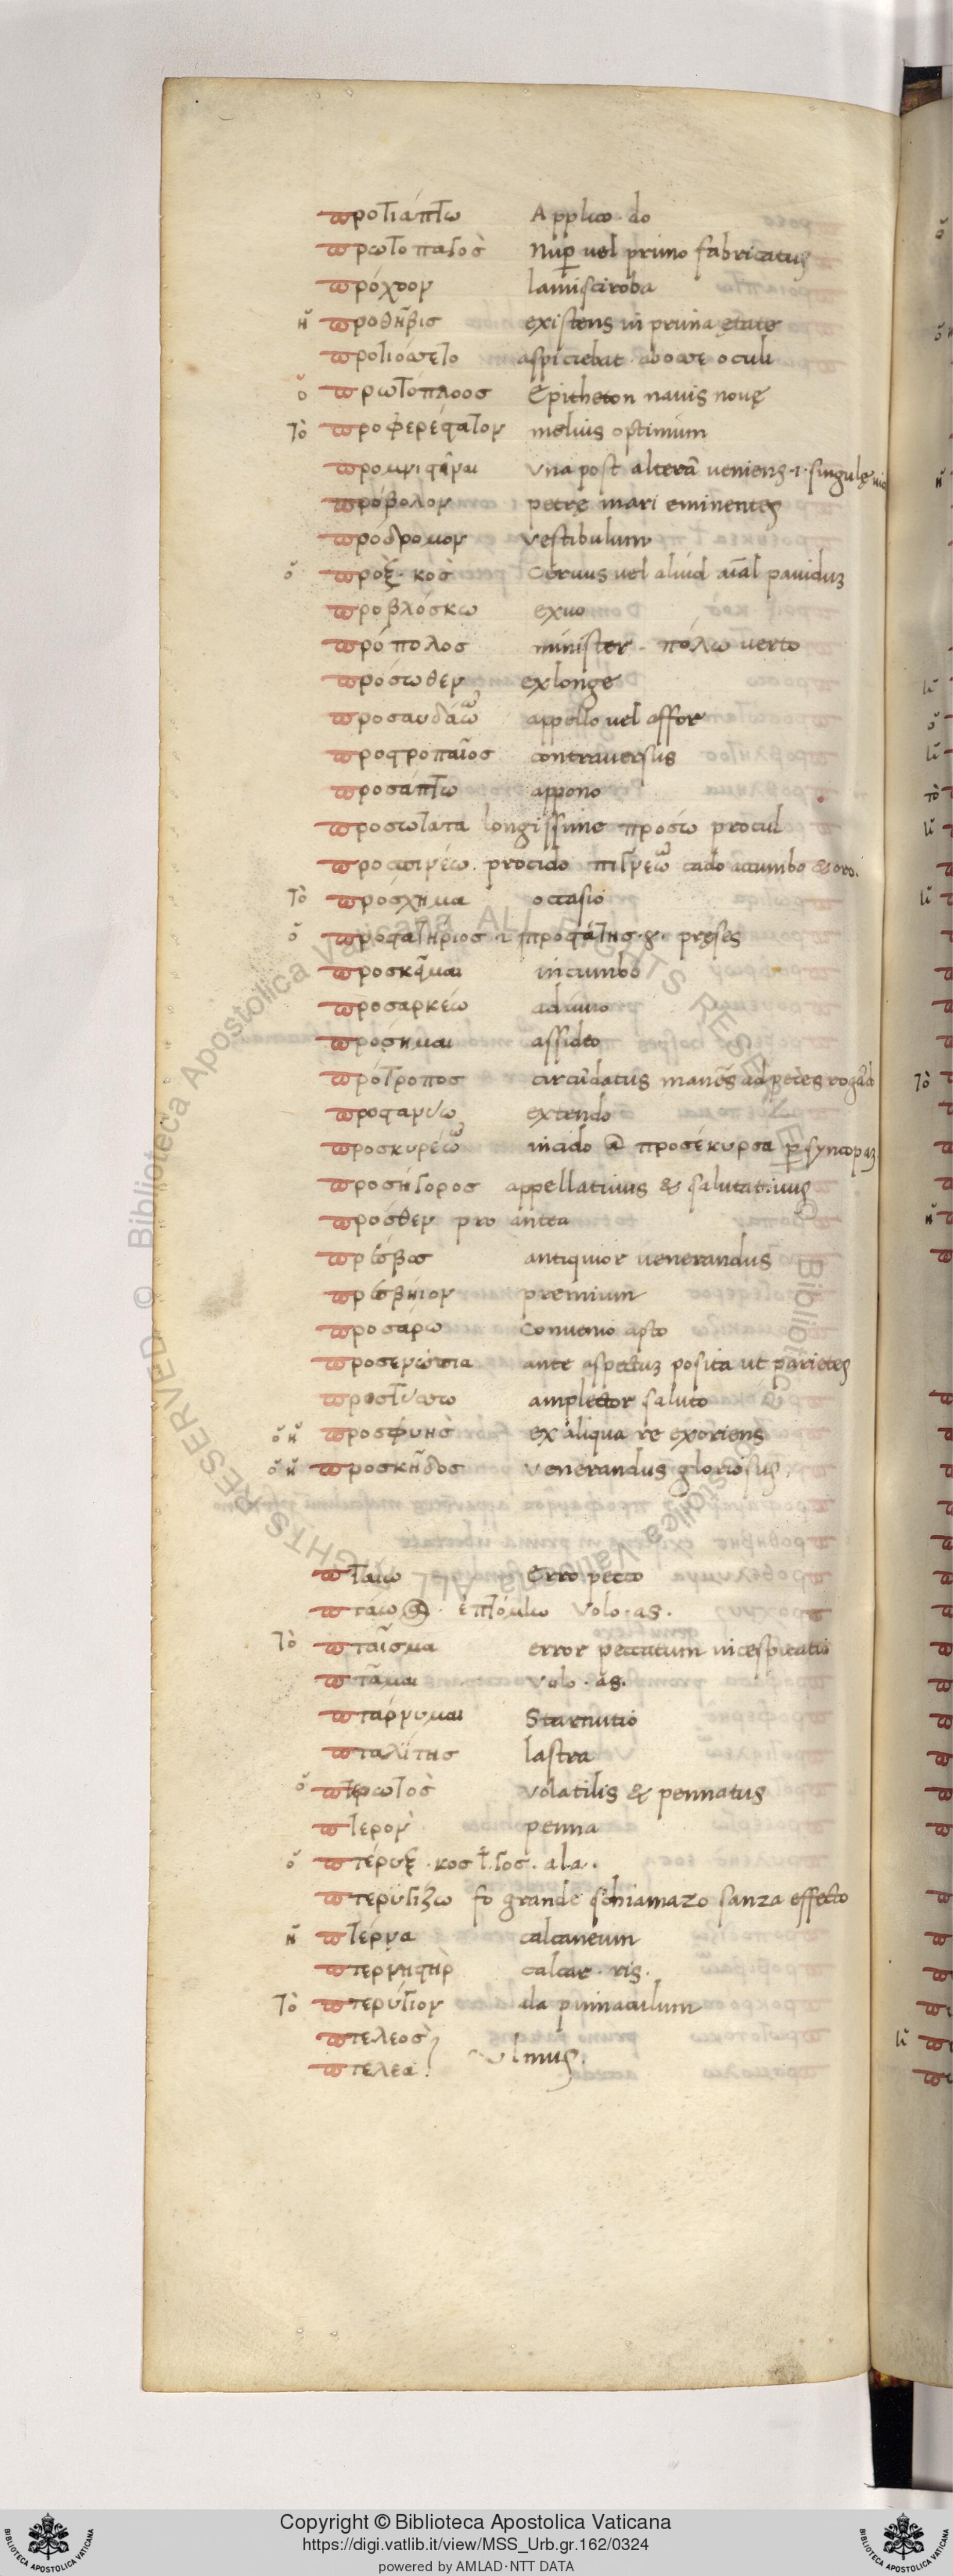 προτιάπτω Applico · do
πρωτοπαγοσ̀ nup̱ vel primo fabricatus
πρόχοον
ἡ προθῆβισ existens in prima ętate
προτιόπτετο aspiciebat · oculi
ὁ πρωτόπλοοσ Epitheton navis nouę
τὸ προφερέστατον melius optimum
una post alterā veniens ·i· singulę
πρόβολον petrę mari eminentes
πρόδρομον vestibulum
ὁ πρὸξ · κοσ̀ Ceruus vel aliud aīal pauiduʒ
προβλόσκω exuo
πρόπολοσ minister · πόλω verto
πρόσωθεν ex longe
προσαυδάω ῶ appello vel affor
προστροπαῖοσ contraversus
προσάπτω appono
προσωτατα longissime προσώ procul
προσπιτνέω. procido πιτνέω ῶ cado accumbo & oro.
τὸ πρόσχημα occasio
ὁ προστατήριοσ · ι προστάτησ · pręses
προσκεῖμαι incumbo
προσαρκέω adiuvo
πρόσημαι assideo
πρότροποσ circūdatus manēs ad pedes
προστανύω extendo
προσκυρέω ῶ incido @ προσέκυρσα p̱ syncopaʒ
προσήγοροσ appellativus & salutativus
πρόσθεν pro antea
πρέσβοσ antiquior venerandus
πρεσβήιον premium
προσαρω convenio apto
προσενώπια ante aspectuʒ posita ut parietes
προσπτύσσω amplector saluto
ὁ ἡ προσφυησ̀ ex aliqua re exoriens
ὁ ἡ προσκηδοσ venerandus gloriosus
πταίω Erro pecco
πτάω @ · volo · as ·
τὸ πταῖσμα error peccatum
πτᾶμαι volo · as.
πτάρνυμαι Starnutio
πταλίτησ lastra
ὁ πτερωτοσ̀ volatilis & pennatus
πτερον̀ penna
ὁ πτέρυξ · κοσ ł γοσ · ala ·
πτερυγίζω fo grande schiamazo sanza effecto
ἡ πτέρνα calcaneum
πτερνηστηρ̀ calcar · ris ·
τὸ πτερύγιον ala pinnaculum
πτελεοσ̀
πτελεά · ulmus ·
Copyright © Biblioteca Apostolica Vaticana
https://digi.vatlib.it/view/MSS_Urb.gr.162/0324
powered by AMLAD·NTT DATA